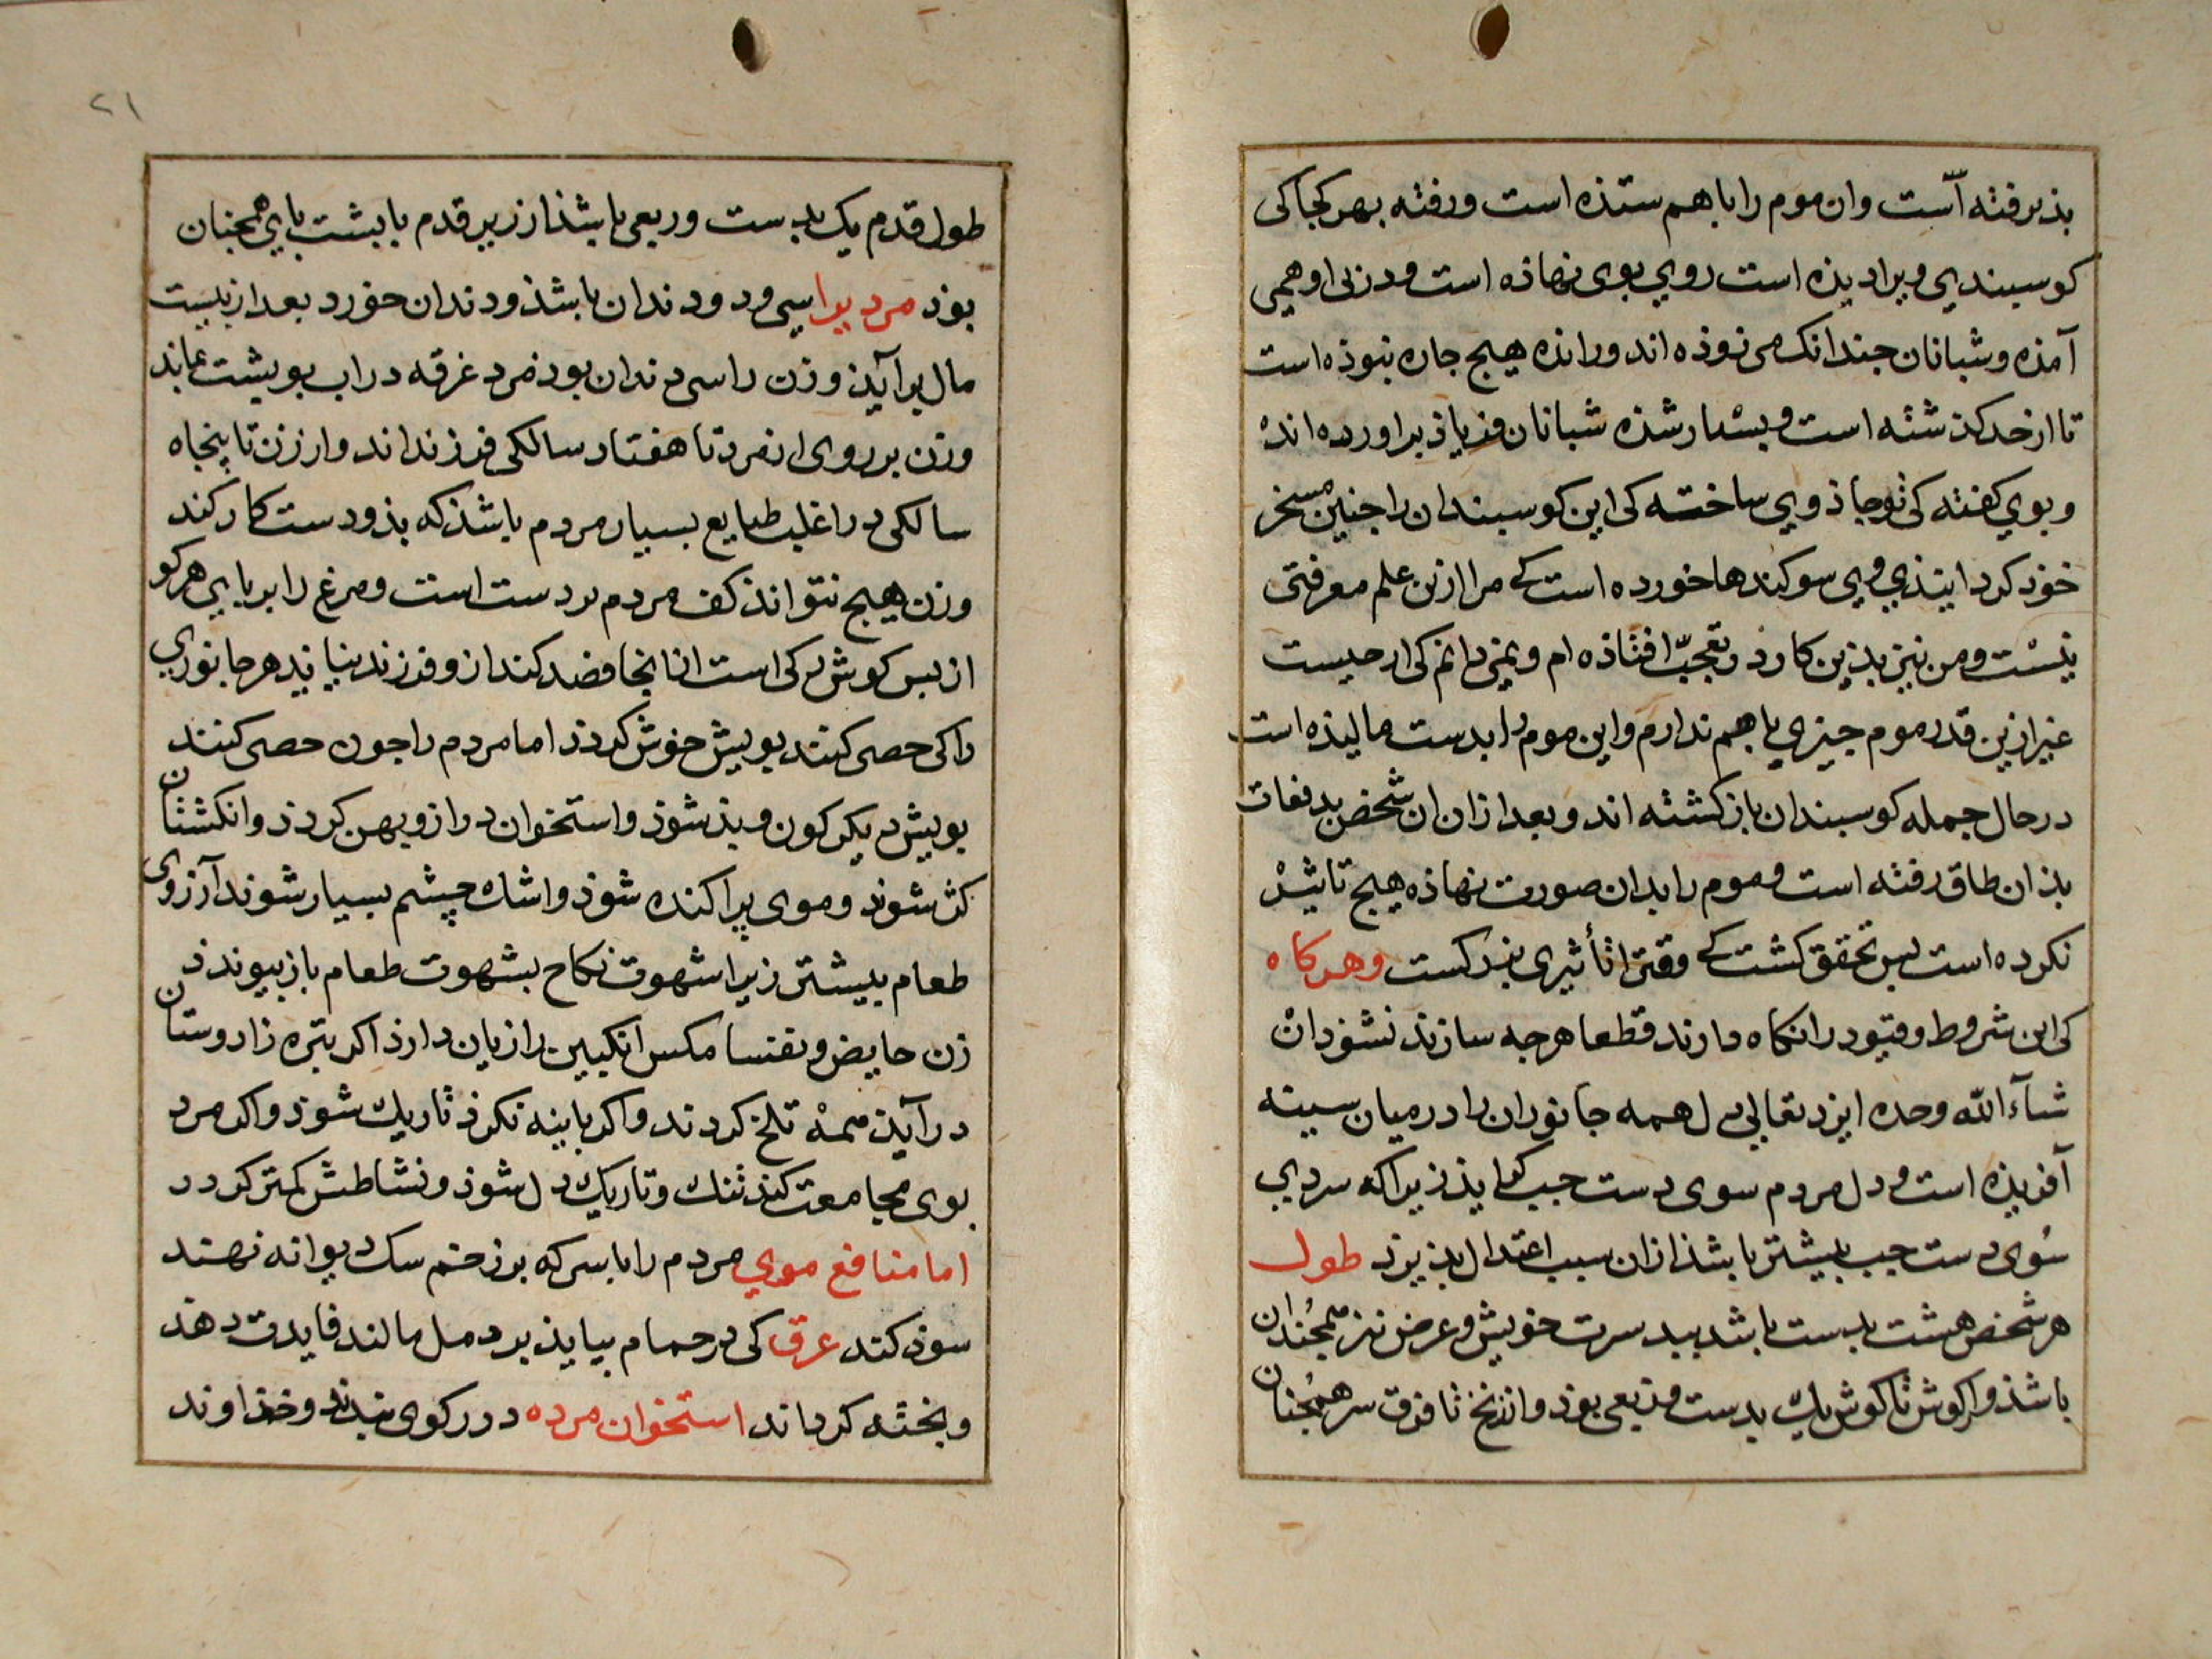 بذیرفته است وان موم را باهم ستذه است ورفته بهر کجا کی
کوسبندی ویرا دیذه است روی بوی نهاذه است و در پی او همی
آمذه و شبانان جندانک می زوذه اند ورانده هیج جاره نبوذه است
تا از حد کذشته است و بسیار شذه شبانان فریاذ براورده اند
و بوی کفته کی تو جاذوی ساخته کی این کوسبندان را جنین مسخر
خوذ کردایتذی وی سوکندها خورده است کے مرا ازین علم معرفتی
نیست ومن نیز بذین کار در تعجب افتاذه ام ونمی دانم کی از جیست
غیر ازین قدر موم جیزی باهم ندارم واین موم را بدست مالیذه است
در حال جمله کوسبندان باز کشته اند و بعد ازان ان شخص بدفعات
بذان طاق رفته است وموم را بدان صورت نهاذه هیج تاثیر
نکرده است بس تحقق کشت کے وقت را تأثیری بزرکست وهرکاه
کی این شروط وقیود را نکاه دارند قطعا هرجه سازند نشوذ ان
شآء الله وحده ایزد تعالی دل همه جانوران را در میان سینه
آفریذه است و دل مردم سوی دست جب کراید زیرا که سردی
سوی دست جب بیشتر باشذ ازان سبب اعتدال بذیرد طول
هر شخص هشت بدست باشد ببدست خویش و عرض نیز همجندان
باشذ واز کوش تا کوش یک بدست وربعی بوذ واز زنخ تا فرق سر همجنان
۲۱
طول قدم یک بدست وربعی باشذ از زیر قدم با بشت بای همجنان
بوذ مرد را سی و دو دندان باشذ و دندان خورد بعد از بیست
سال برآیذ و زن را سی دندان بوذ مرد غرقه در اب بوبشت بماند
وزن بر روی از مرد تا هفتاد سالکی فرزند اند واز زن تا بنجاه
سالکی در اغلب طبایع بسیار مردم باشذ که بذو دست کار کند
وزن هیج نتواند کف مردم بر دست است ومرغ را بر بای هر کو
از بس کوش رکی است از انجا فصد کند از و فرزند نیاید هر جانوری
را کی خصی کنند بویش خوش کردد اما مردم را جون خصی کنند
بویش دیکر کون و بذ شوذ واستخوان دراز و بهن کردذ وانکشتان
کژ شوند وموی براکنده شوذ واشک چشم بسیار شوند آرزوی
طعام بیشتر زیرا شهوت نکاح بشهوت طعام باز بیوندذ
زن حایض و نفسا مکس انکبین را زیان دارذ اکر بتره زار وستان
درآیذ همه تلخ کردند واکر بابینه نکرذ تاریک شوذ واکر مرد
بوی مجامعت کند تنک و تاریک دل شوذ و نشاطش کمتر کردد
اما منافع موی مردم را با سرکه بر زخم سک دیوانه نهند
سوذ کند عرق کی در حمام بیایذ بر دمل مالند فایدت دهد
وبخته کرداند استخوان مرده در رکوی بندند و خداوند